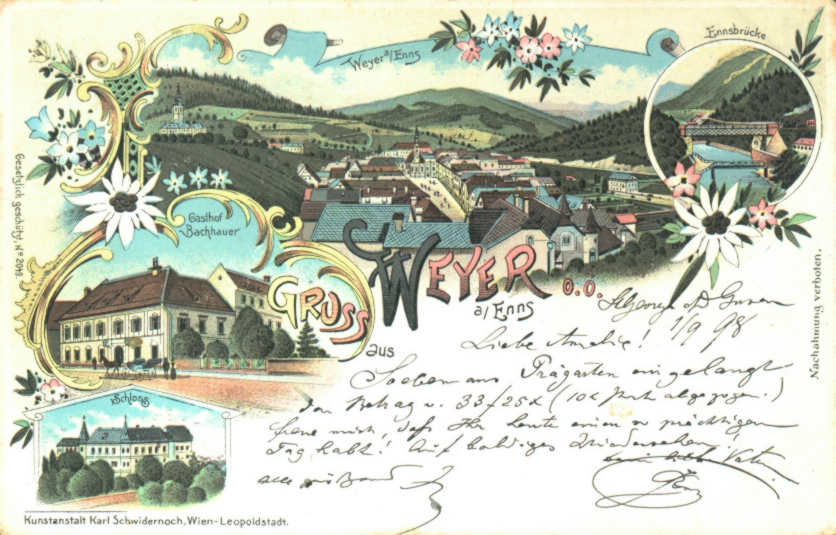 Weyer a/Enns
Ennsbrücke
Gesetzlich geschützt, No 2049.
Gasthof
"Bachhauer"
GRUSS
aus
WEYER
a/Enns
O.Ö.
1/9 98
Liebe Amelie!
Soeben aus Prägarten eingelangt
Betrag v. 33 f 25 x (10 x abgezogen.)
mich, daß Ihr heute einen so prächtigen
Tag habt! Auf baldiges Wiedersehen!
Vater
Schloss
Nachahmung verboten.
Kunstanstalt Karl Schwidernoch, Wien-Leopoldstadt.